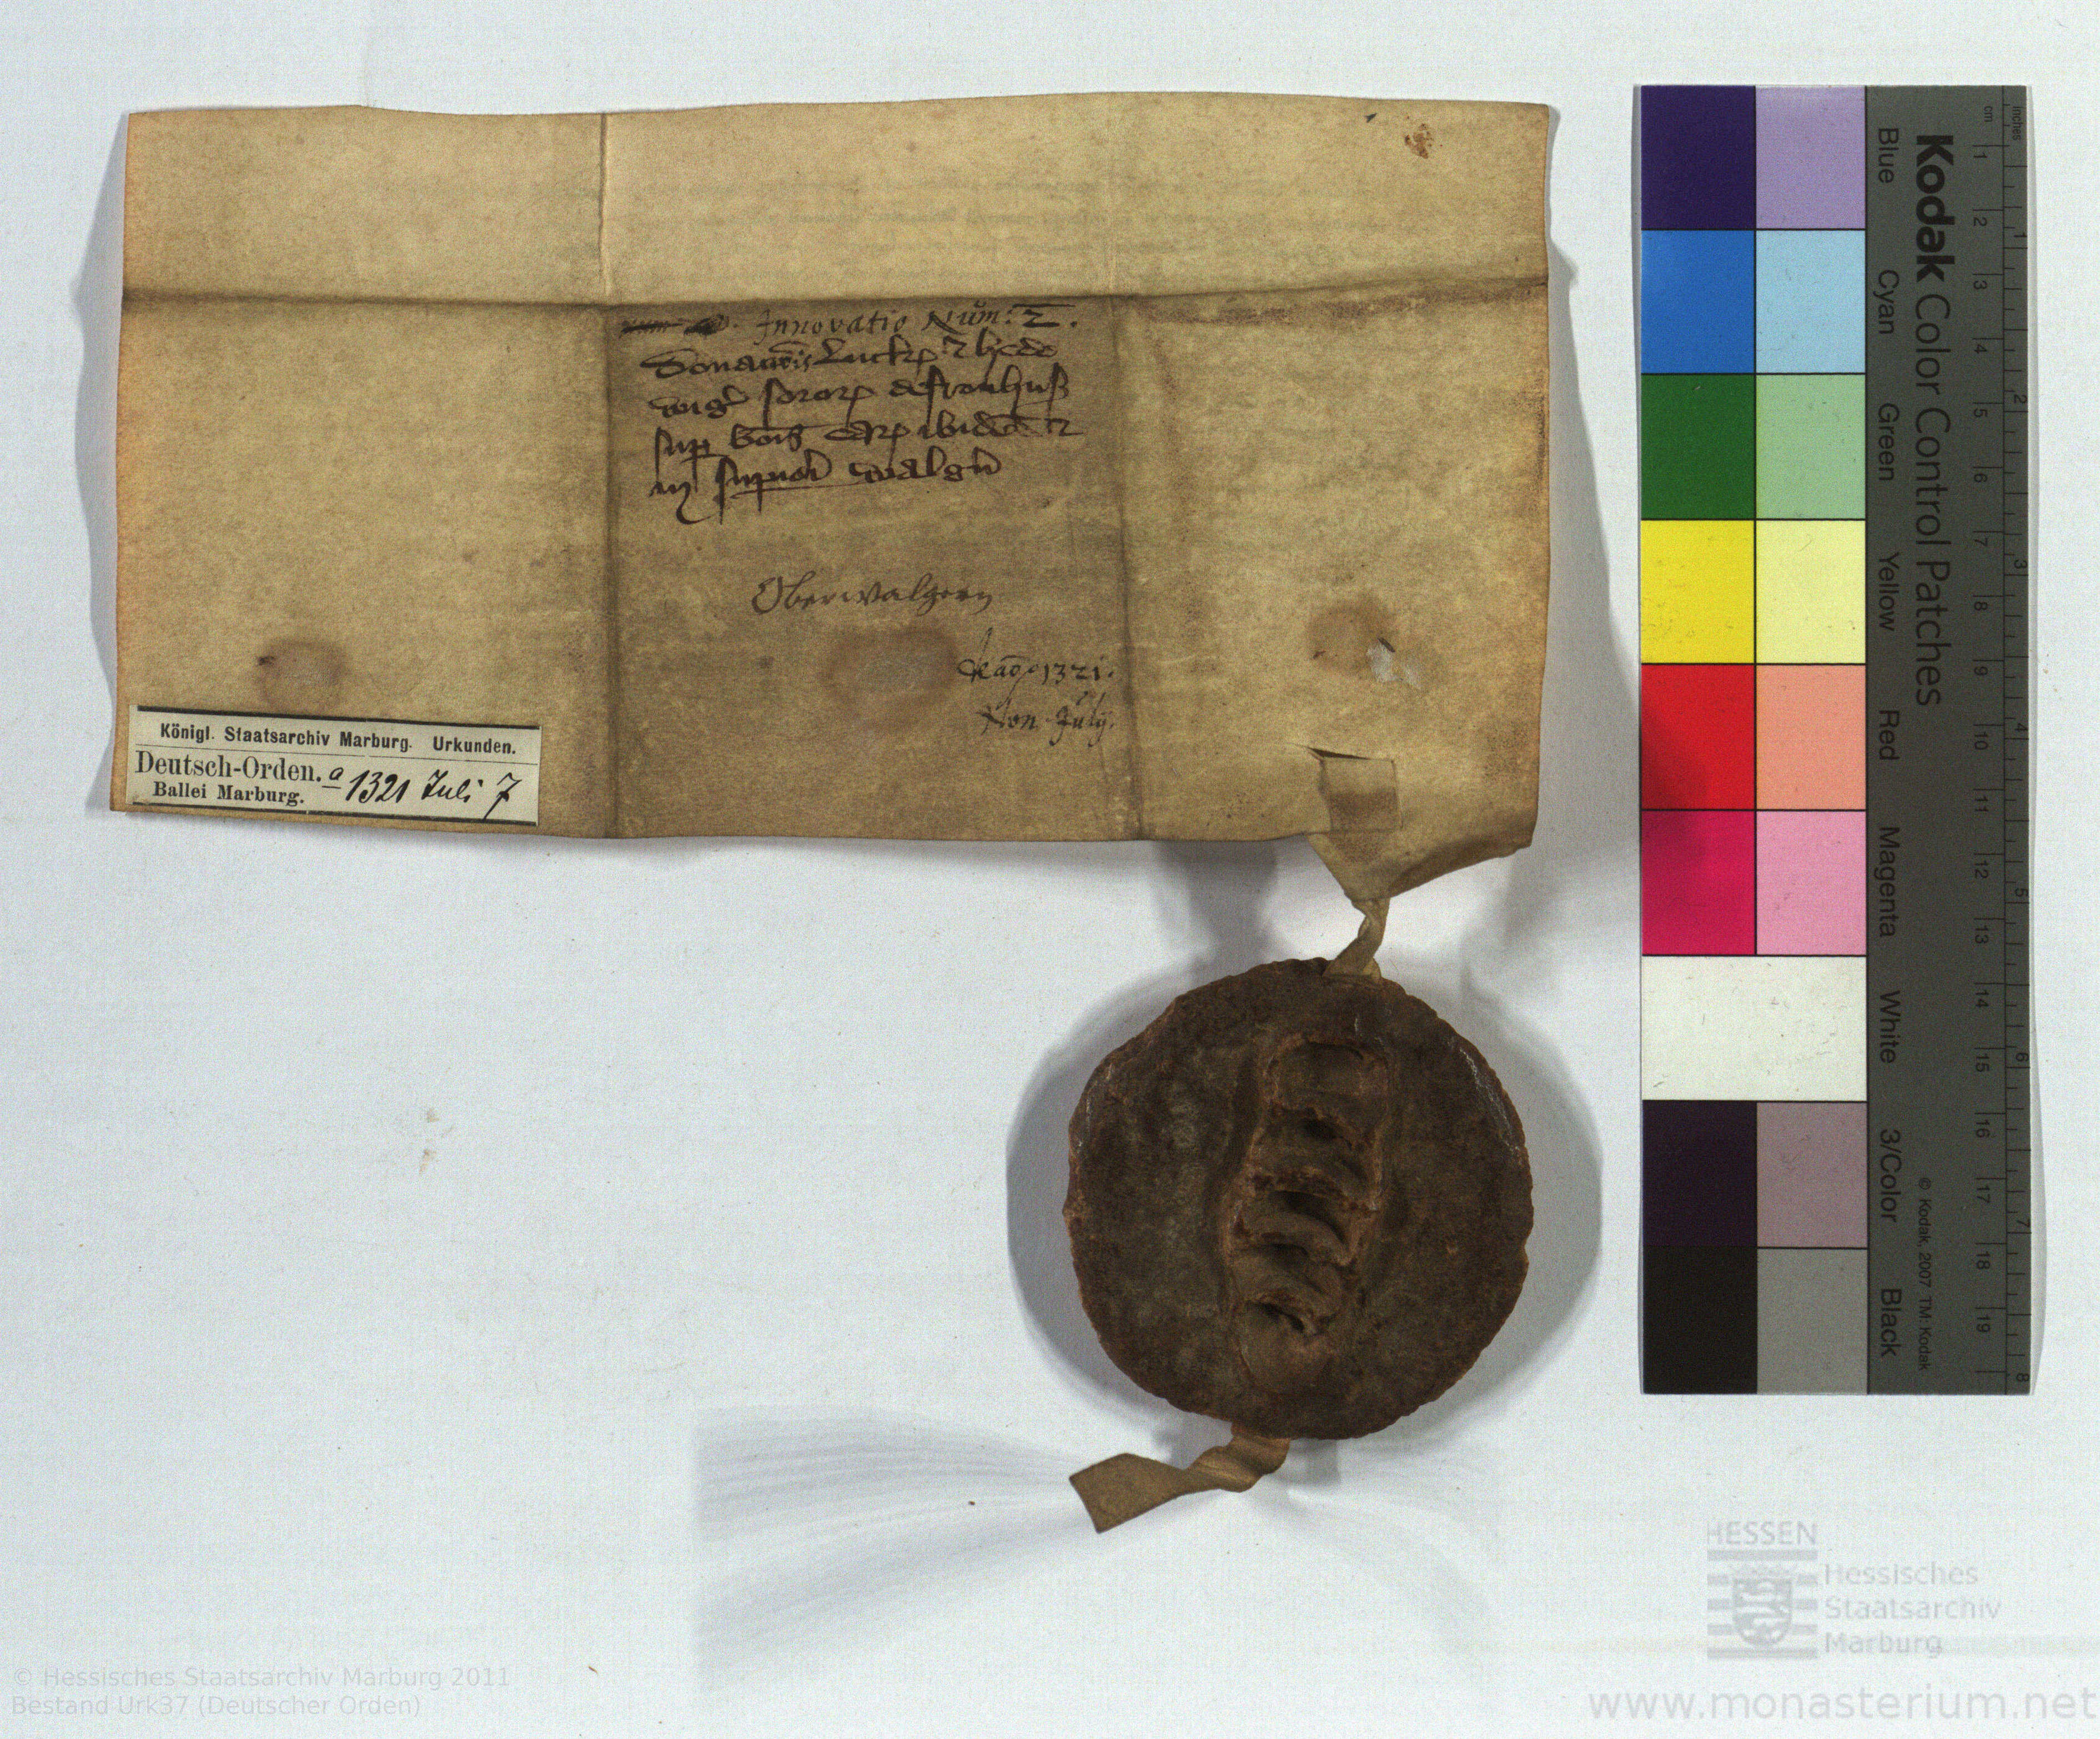 Innovatio Num: 2.
Donatois Luckꝝ ⁊ Hede
wigꝭ sororꝝ de fronhuß
suꝑ bois eaꝝ ibidē ⁊
in supiori walgn
Oberwalgern
de aō 1321.
Non July.
Königl. Staatsarchiv Marburg. Urkunden.
Deutsch-Orden. a 1321 Juli 7
Ballei Marburg.
Kodak Color Control Patches
Blue Cyan Green Yellow Red Magenta White 3/Color Black
© Kodak, 2007 TM: Kodak
cm 1 2 3 4 5 6 7 8 9 10 11 12 13 14 15 16 17 18 19
inches 1 2 3 4 5 6 7 8
HESSEN
Hessisches
Staatsarchiv
Marburg
© Hessisches Staatsarchiv Marburg 2011
Bestand Urk37 (Deutscher Orden)
www.monasterium.net